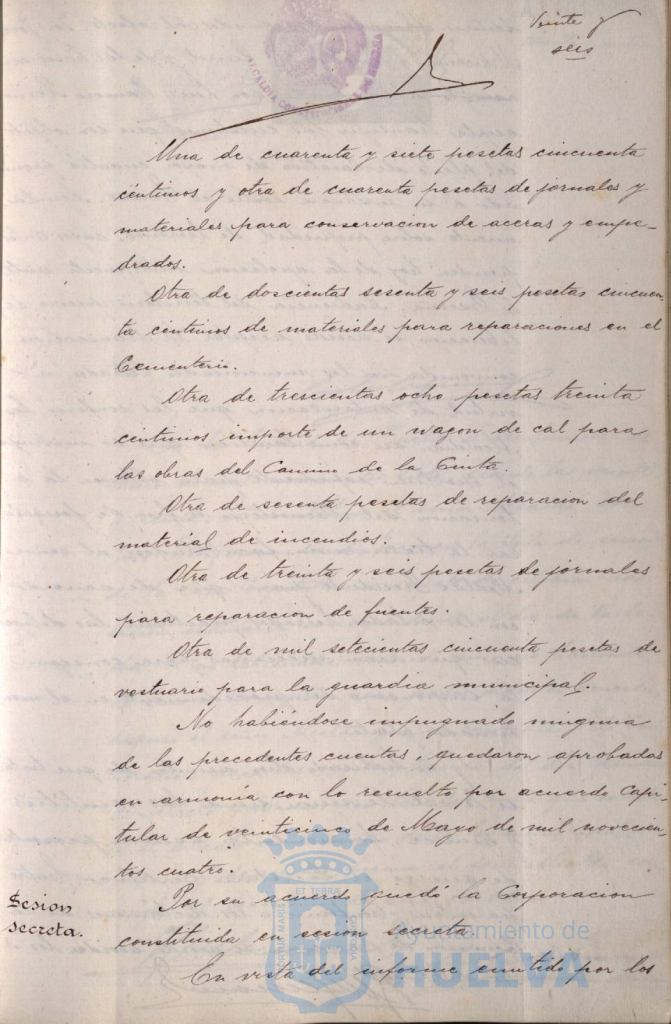 Veinte y
seis
ALCALDIA CONSTITUCIONAL DE HUELVA
Una de cuarenta y siete pesetas cincuenta
céntimos y otra de cuarenta pesetas de jornales y
materiales para conservacion de aceras y empe-
drados.
Otra de doscientas sesenta y seis pesetas cincuen-
ta centimos de materiales para reparaciones en el
Cementerio.
Otra de trescientas ocho pesetas treinta
centimos importe de un wagon de cal para
las obras del Camino de la Cinta.
Otra de sesenta pesetas de reparacion del
material de incendios.
Otra de treinta y seis pesetas de jornales
para reparacion de fuentes.
Otra de mil setecientas cincuenta pesetas de
vestuario para la guardia municipal.
No habiéndose impugnado ninguna
de las precedentes cuentas, quedaron aprobadas
en armonía con lo resuelto por acuerdo Capi-
tular de veinticinco de Mayo de mil novecien-
tos cuatro.
Sesion
secreta.
Por su acuerdo quedó la Corporacion
constituida en sesion secreta.
En vista del informe emitido por los
PORTUS MARIS ET TERRAE CUSTODIA
Ayuntamiento de
HUELVA